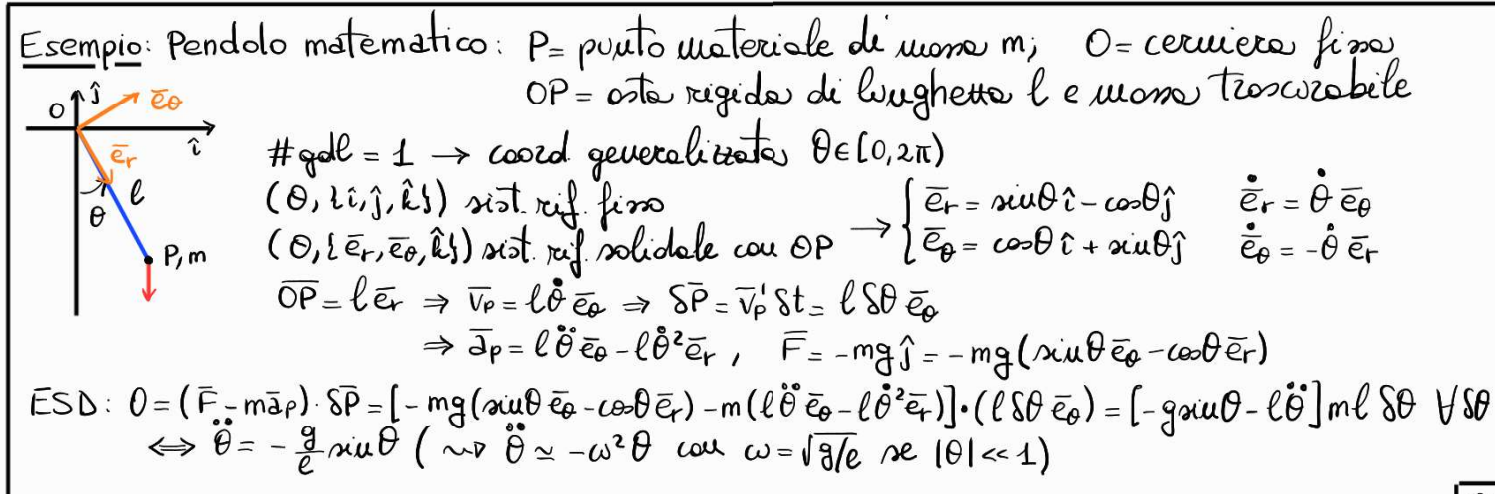 Esempio: Pendolo matematico: P= punto materiale di massa m; O= cerniera fissa
OP= asta rigida di lunghezza l e massa trascurabile
O ĵ ē_θ
î
ē_r
θ l
P, m
#gdl = 1 → coord generalizzata θ∈[0,2π)
(O,{î,ĵ,k̂}) sist. rif. fisso
(O,{ē_r,ē_θ,k̂}) sist. rif. solidale con OP → { ē_r = sinθ î - cosθ ĵ   ē̇_r = θ̇ ē_θ
ē_θ = cosθ î + sinθ ĵ   ē̇_θ = -θ̇ ē_r
O̅P̅ = l ē_r ⇒ v̄_P = l θ̇ ē_θ ⇒ δP̄ = v̄'_P δt = l δθ ē_θ
⇒ ā_P = l θ̈ ē_θ - l θ̇² ē_r , F̄ = -mg ĵ = -mg(sinθ ē_θ - cosθ ē_r)
ESD: 0 = (F̄ - m ā_P) · δP̄ = [-mg(sinθ ē_θ - cosθ ē_r) - m(l θ̈ ē_θ - l θ̇² ē_r)] · (l δθ ē_θ) = [-g sinθ - l θ̈] m l δθ ∀δθ
⇔ θ̈ = - g/l sinθ ( ⇝ θ̈ ≃ -ω² θ con ω = √g/l se |θ| << 1)